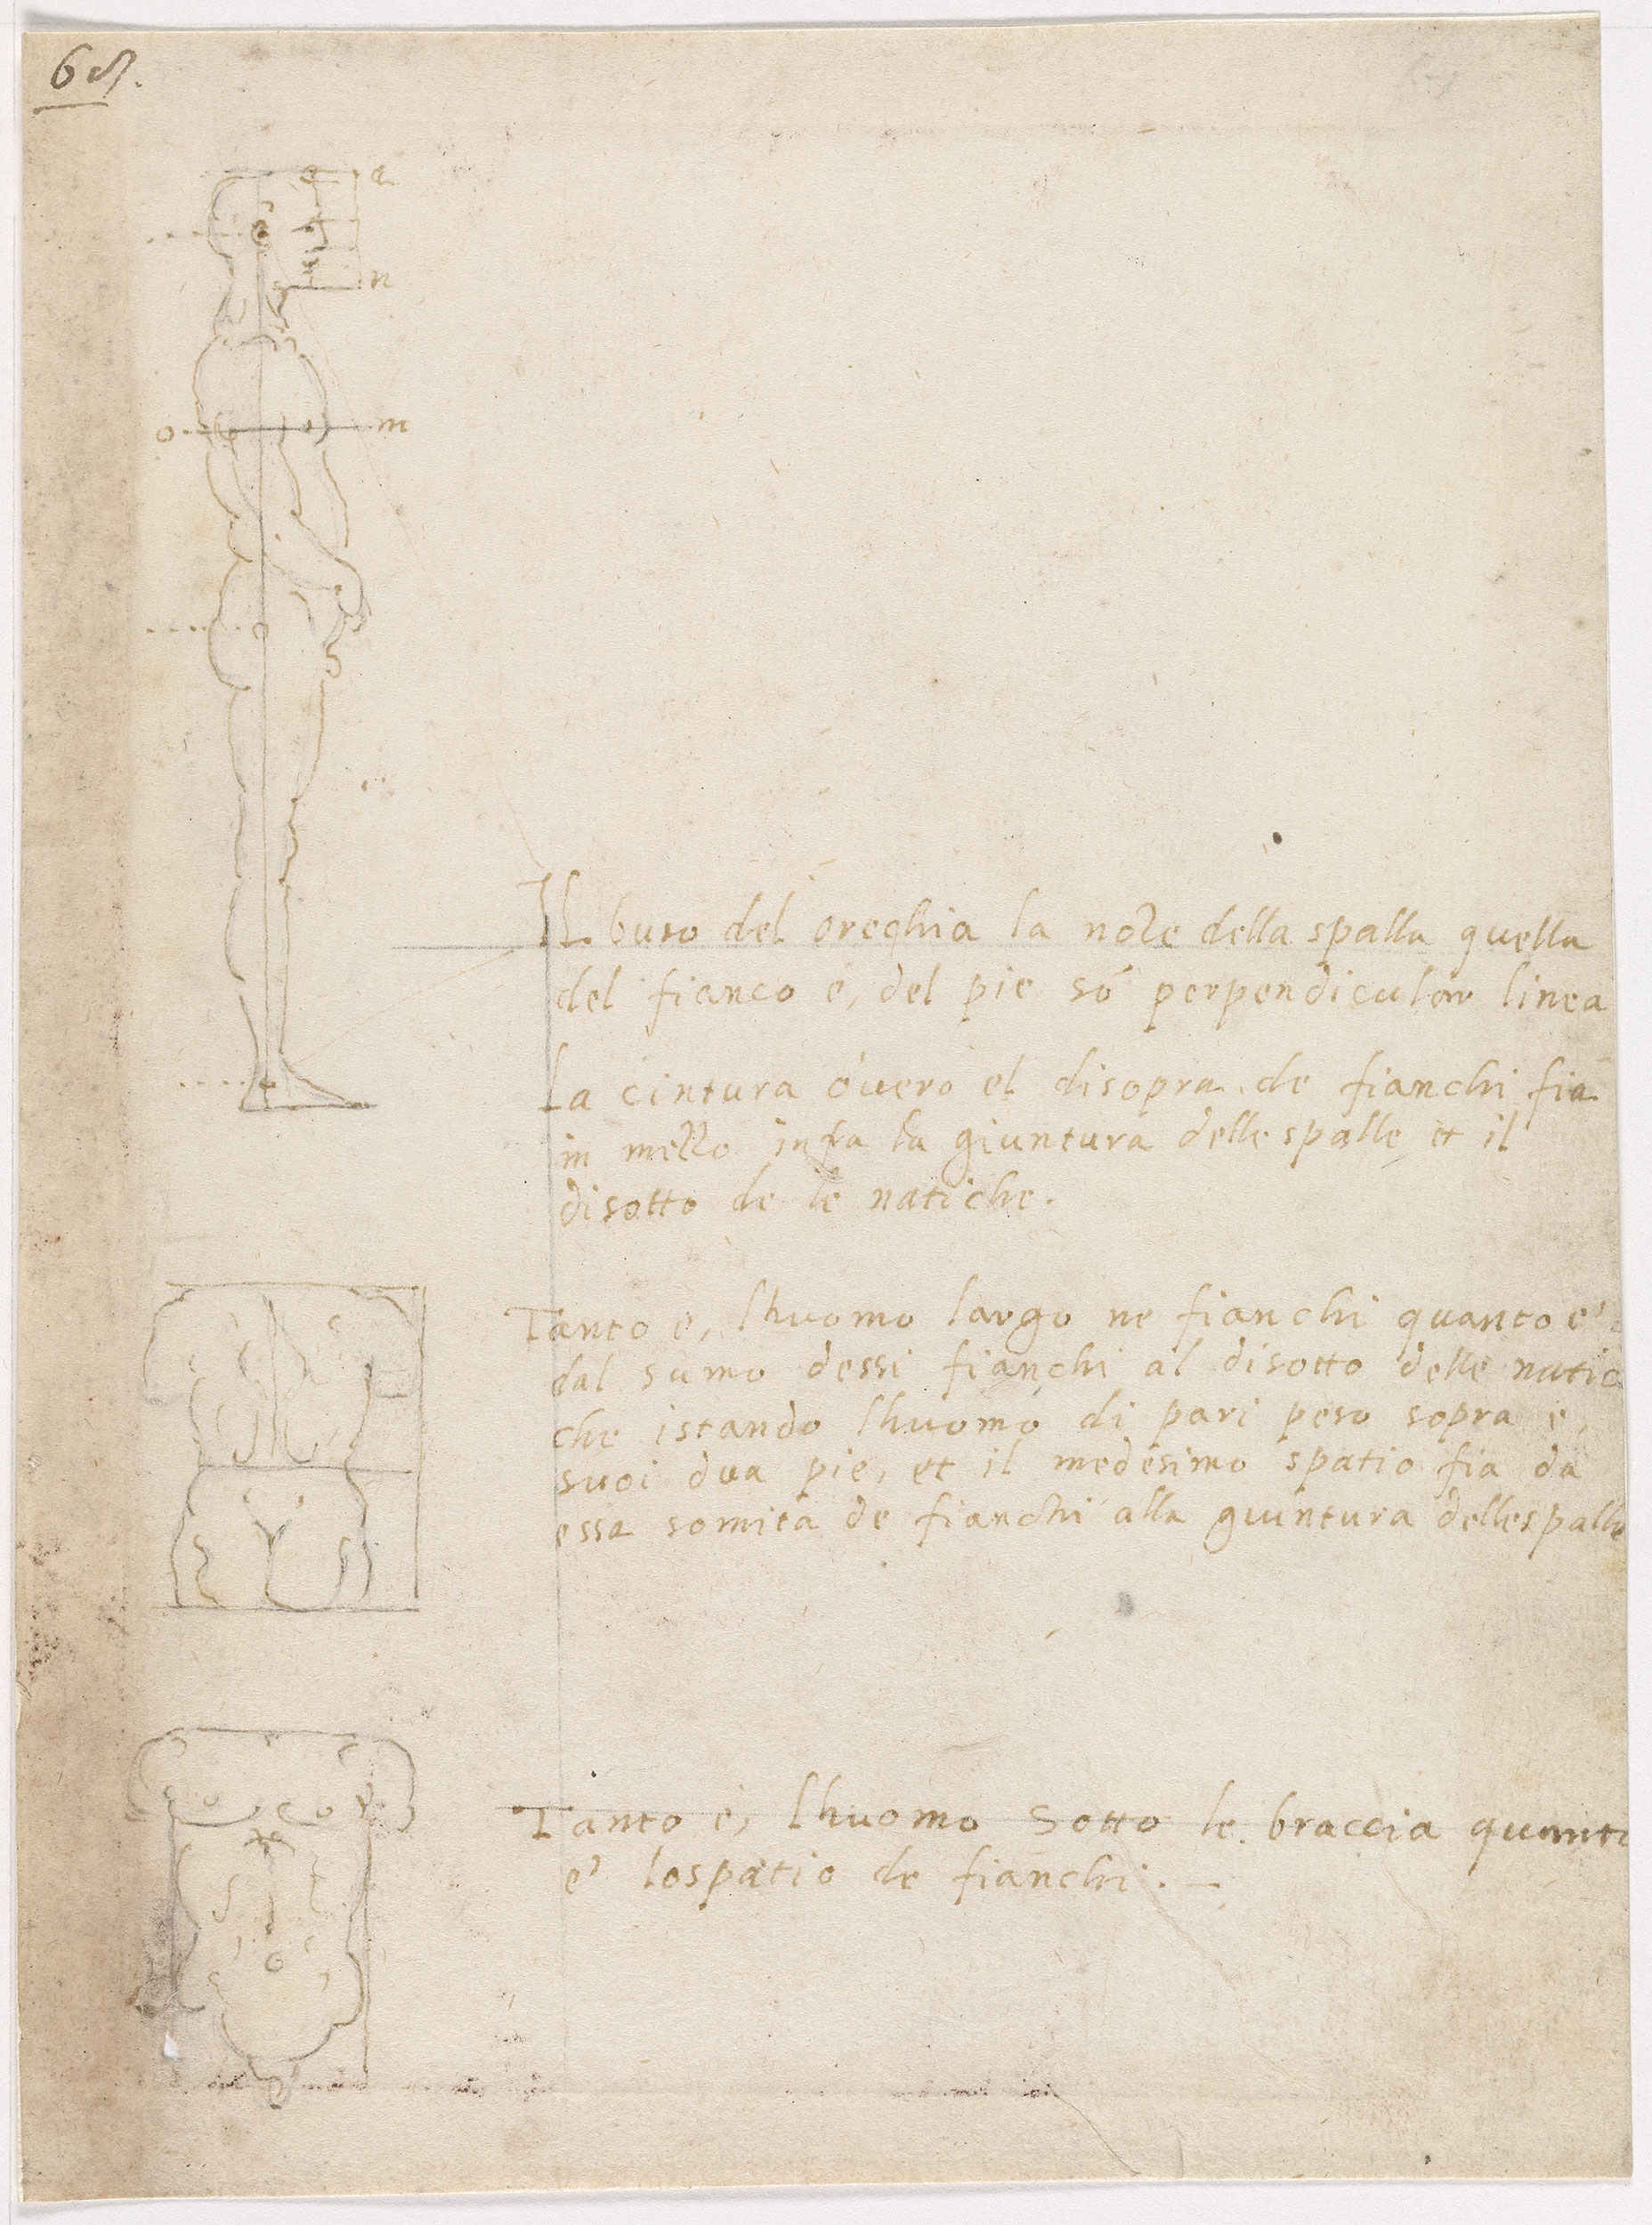 68.
a
n
o m
Il buso del orechia la noce della spalla quella
del fianco e, del pie só perpendicular linea
La cintura óvero el disopra de fianchi fia
in mezzo infra la giuntura delle spalle et il
disotto de le natiche.
Tanto e, lhuomo largo ne fianchi quanto e'
dal sumo dessi fianchi al disotto delle natic
che istando lhuomo di pari peso sopra e,
suoi dua pie, et il medesimo spatio fia da
essa somita de fianchi alla giuntura delle spalle
Tanto e, lhuomo sotto le braccia quanto
e' lo spatio de fianchi. —